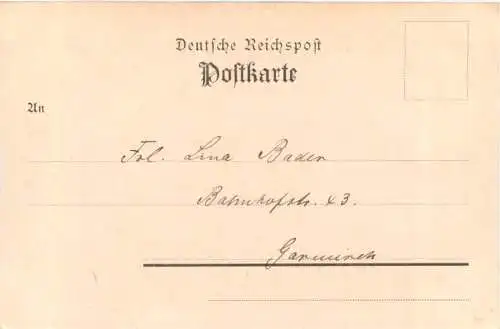 Deutsche Reichspost
Postkarte
An
Frl. Lina Bader
Bahnhofstr. 43.
Garmisch